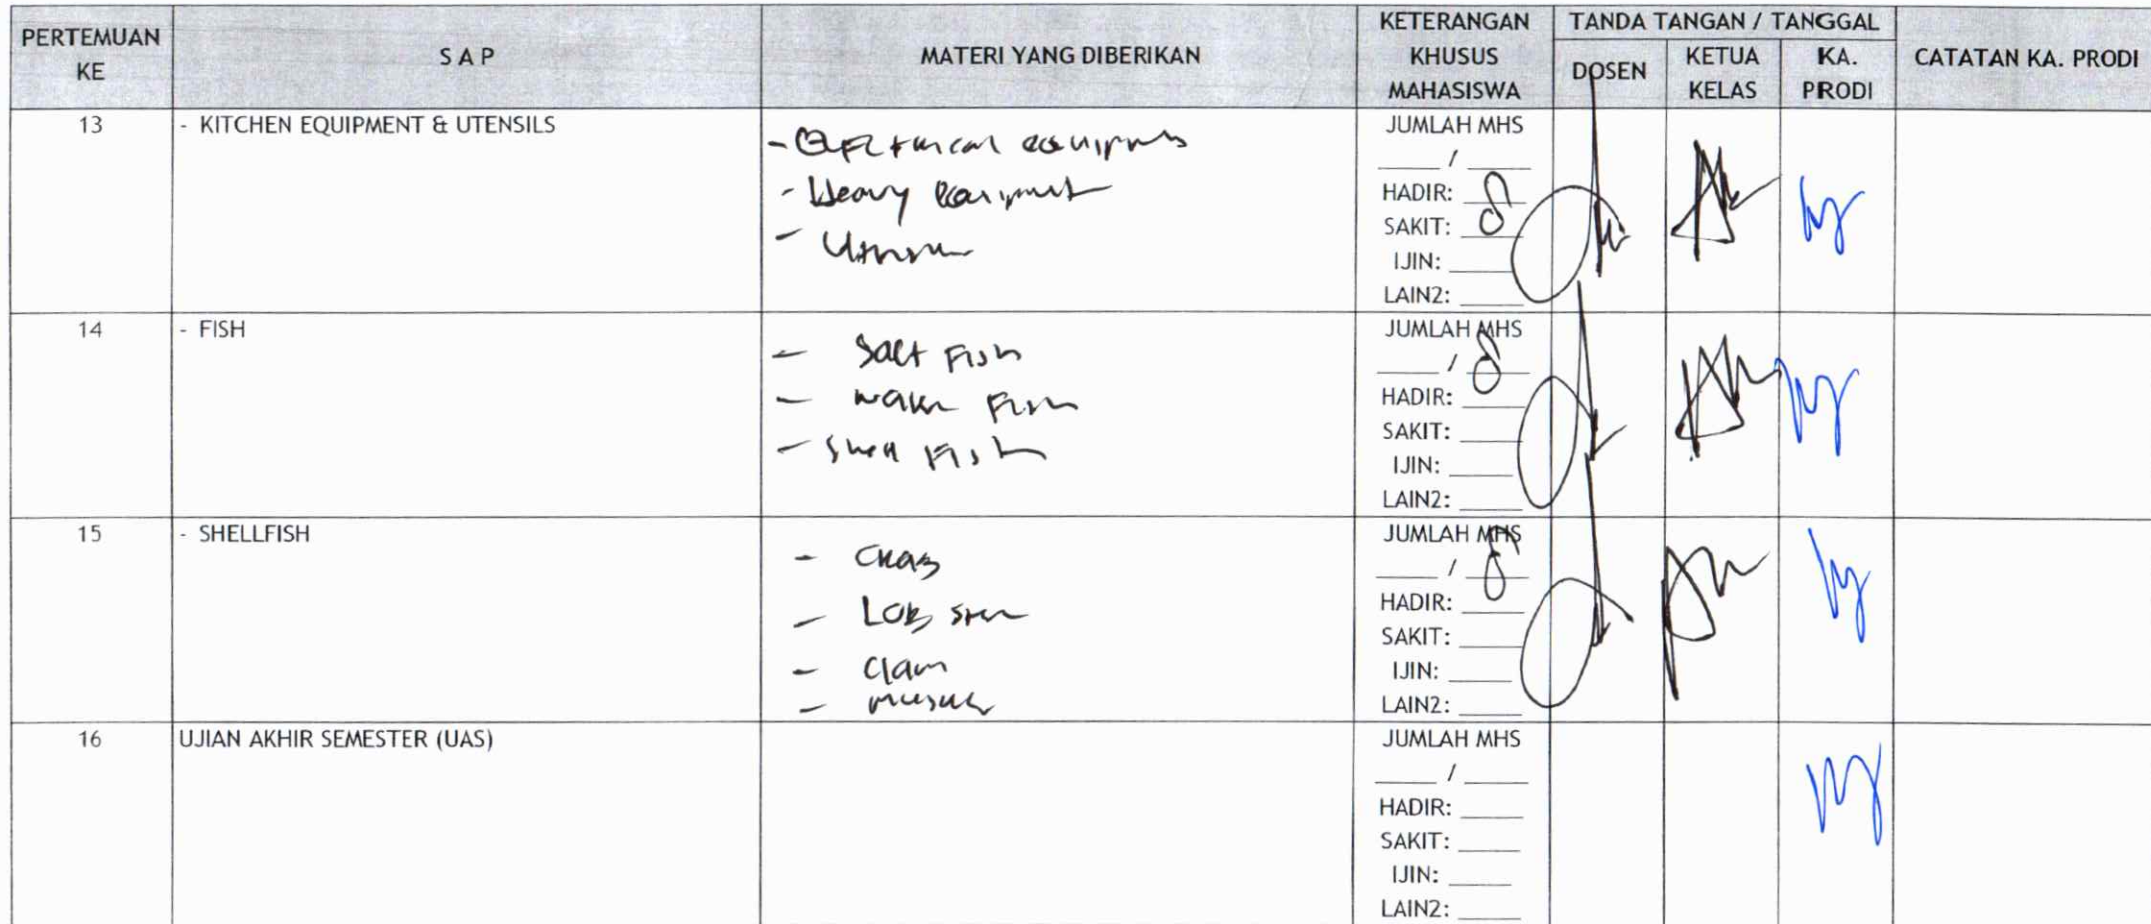 PERTEMUAN KE
S A P
MATERI YANG DIBERIKAN
KETERANGAN KHUSUS MAHASISWA
TANDA TANGAN / TANGGAL
DOSEN
KETUA KELAS
KA. PRODI
CATATAN KA. PRODI
13
- KITCHEN EQUIPMENT & UTENSILS
- Heavy Equipment
JUMLAH MHS
____ / ____
HADIR: ____
SAKIT: ____
IJIN: ____
LAIN2: ____
8
14
- FISH
- Salt Fish
- Water Fish
- Shell Fish
JUMLAH MHS
____ / ____
8
HADIR: ____
SAKIT: ____
IJIN: ____
LAIN2: ____
15
- SHELLFISH
- Crab
- Lobster
- Clam
JUMLAH MHS
____ / ____
8
HADIR: ____
SAKIT: ____
IJIN: ____
LAIN2: ____
16
UJIAN AKHIR SEMESTER (UAS)
JUMLAH MHS
____ / ____
HADIR: ____
SAKIT: ____
IJIN: ____
LAIN2: ____